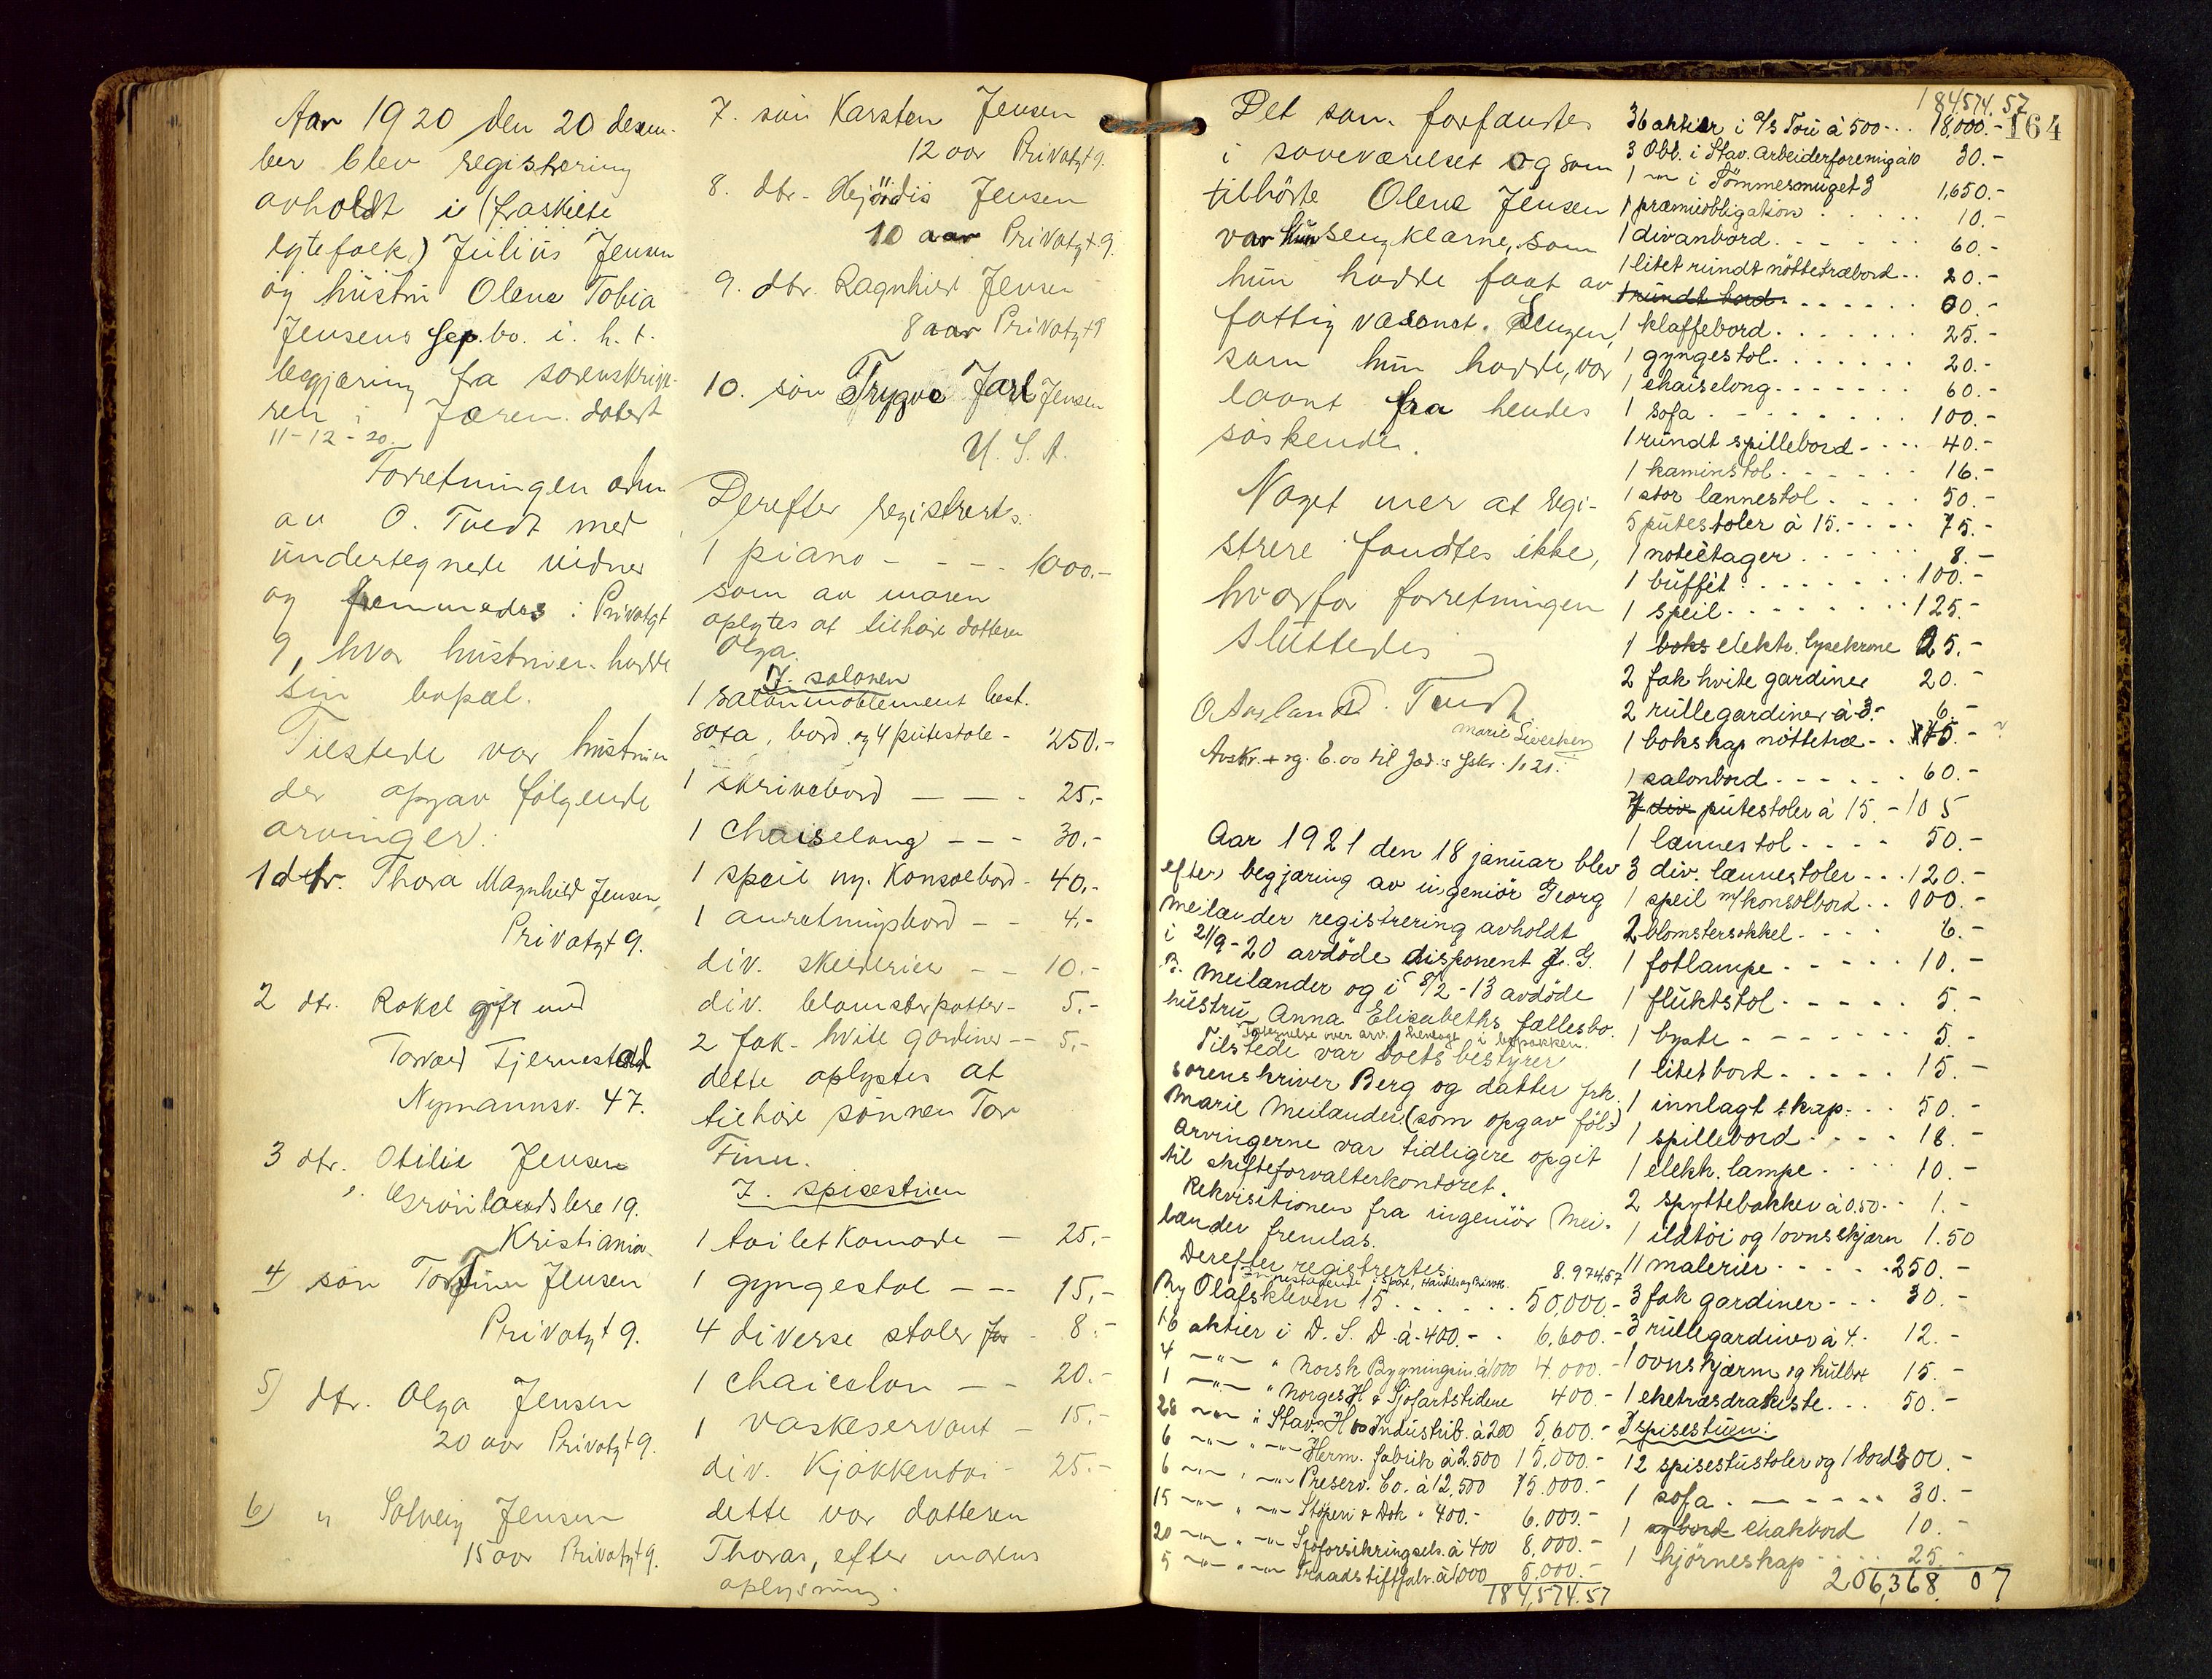 Aar 1920 den 20 decem-
ber blev registrering
avholdt i (fraskilte
egtefolk) Julius Jensen
og hustru Olene Tobia
Jensens sep.bo. i. h. t.
begjæring fra sorenskrive-
ren i Jæren. datert
11-12-20.
Forretningen adm
av O. Tvedt med
undertegnede vidner
og fremmedes i Privatgt
9, hvor hustruen hadde
sin bopæl.
Tilstede var hustruen
der opgav følgende
arvinger:
1 dtr. Thora Magnhild Jensen,
Privatgt 9.
2 dtr. Rakel gift med
Torvald Tjernestad
Nymannsv. 47.
3 dtr. Otilie Jensen
Grønlandslere 19.
Kristiania
4) søn Torfinn Jensen
Privatgt 9.
5) dtr. Olga Jensen
20 aar Privatgt 9.
6) " Solveig Jensen
15 aar Privatgt 9.
7. søn Karsten Jensen
12 aar Privatgt 9.
8. dtr. Hejördis Jensen
10 aar Privatgt 9.
9. dtr. Ragnhild Jensen
8 aar Privatgt 9
10. søn Trygve Jarl Jensen
U. S. A.
Derefter registrertes:
1 piano - - - - 1000.-
som av moren
oplystes at tilhøre datteren
Olga.
I. salonen
1 salonmøblement best.
sofa, bord og 4 putestole - 250.-
1 skrivebord - - - 25.-
1 Chaiselong - - - 30.-
1 speil m. Konsolbord - 40.-
1 anretningsbord - - 4.-
div. skilderier - - 10.-
div. blomsterpotter - 5.-
2 fak. hvite gardiner - - 5.-
dette oplystes at
tilhøre sønnen Tor
Finn.
I. spisestuen
1 toiletkomode - 25.-
1 gyngestol - - - 15.-
4 diverse stoler - 8.-
1 chaiselon - - 20.-
1 vaskeservant - 15.-
div. Kjøkkentøi - 25.-
dette var datteren
Thoras, efter morens
oplysning.
Det som forfandtes
i soveværelset og som
tilhørte Olene Jensen
var kun sengklærne, som
hun hadde faat av
fattigvæsenet. Sengen,
som hun hadde, var
laant fra hendes
søskende.
Noget mer at regi-
strere fandtes ikke,
hvorfor forretningen
sluttedes
O Aasland O. Tvedt
Marie Sivertsen
Avskr. + rg. 6.00 til Jæd. s Gskr. 1/1 21.
Aar 1921 den 18 januar blev
efter begjæring av ingeniør Georg
Meilænder registrering avholdt
i 21/9-20 avdøde disponent J. G.
B. Meilænder og i 8/2-13 avdøde
hustru Anna Elisabeths fællesbo.
Tilstede var boets bestyrer
sorenskriver Berg og datter frk.
Marie Meilænder (som opgav føl:)
Arvingerne var tidligere opgit
til skifteforvalterkontoret.
Rekvisitionen fra ingeniør Mei-
lænder fremlas.
Derefter registrertes:
8.974.57
By Olafskleven 15 . . . . . . 50,000.-
16 aktier i D. S. D. à 400.- . 6,600.-
4 -"- " Norsk Bygningsin à 1000 4.000.-
1 -"- " Norges H & Sjøfartstidene 400.-
28 -"- i Stav. H & Industrib. à 200 5,600.-
6 -"- " -"- Herm. fabrik à 2.500 15.000.-
6 -"- " -"- Preserv. Co. à 12,500 75.000.-
15 -"- " -"- Støperi & Dok " 400.- 6.000.-
20 -"- " -"- Sjøforsikringsels. à 400 8,000.-
5 -"- " -"- Traadstiftfabr. à 1000 5.000.-
184,574.57
184574.57
164
36 aktier i a/s Tou à 500 - . . 18,000.-
3 Obl. i Stav. Arbeiderforening à 10 30.-
1 -"- i Tømmersmuget 3 1,650.-
1 præmieobligation . . . . . 10.-
1 divanbord . . . . . 60.-
1 litet rundt nøttetræbord . . 20.-
1 rundt bord . . . . . 60.-
1 klaffebord . . . . . 25.-
1 gyngestol . . . . . 20.-
1 chaiselong . . . . . 60.-
1 sofa . . . . . 100.-
1 rundt spillebord . . . . 40.-
1 kaminstol . . . . . 16.-
1 stor lænnestol . . . . 50.-
5 putestoler à 15.- . . . 75.-
1 noteètager . . . . . 8.-
1 buffèt . . . . . 100.-
1 speil . . . . . 125.-
1 boks elektr. lysekrone 25.-
2 fak hvite gardiner 20.-
2 rullegardiner à 3.- 6.-
1 bokskap nøttetræ . . 75.-
1 salonbord . . . . . 60.-
7 div putestoler à 15.- 105
1 lænnestol . . . . 50.-
3 div. lænnestoler . . . 120.-
1 speil m/konsolbord . . 100.-
2 blomstersokkel . . . . 6.-
1 fotlampe . . . . . 10.-
1 fluktstol . . . . . 5.-
1 byste . . . . . 5.-
1 litet bord . . . . . 15.-
1 innlagt skap . . . 50.-
1 spillebord . . . . 18.-
1 elekh. lampe . . . . 10.-
2 spyttebakker à 0.50 . . 1.-
1 ildtøi og 1 ovnsskjærm 1.50
11 malerier . . . . . 250.-
3 fak gardiner . . . 30.-
3 rullegardiner à 4. 12.-
1 ovnskjærm og kulbox 15.-
1 eketræsdrakiste . . . 50.-
I spisestuen:
12 spisestustoler og 1 bord 300.-
1 sofa . . . . . 30.-
1 sybord chakbord 10.-
1 hjørneskap . . . . 25.-
206,368.07